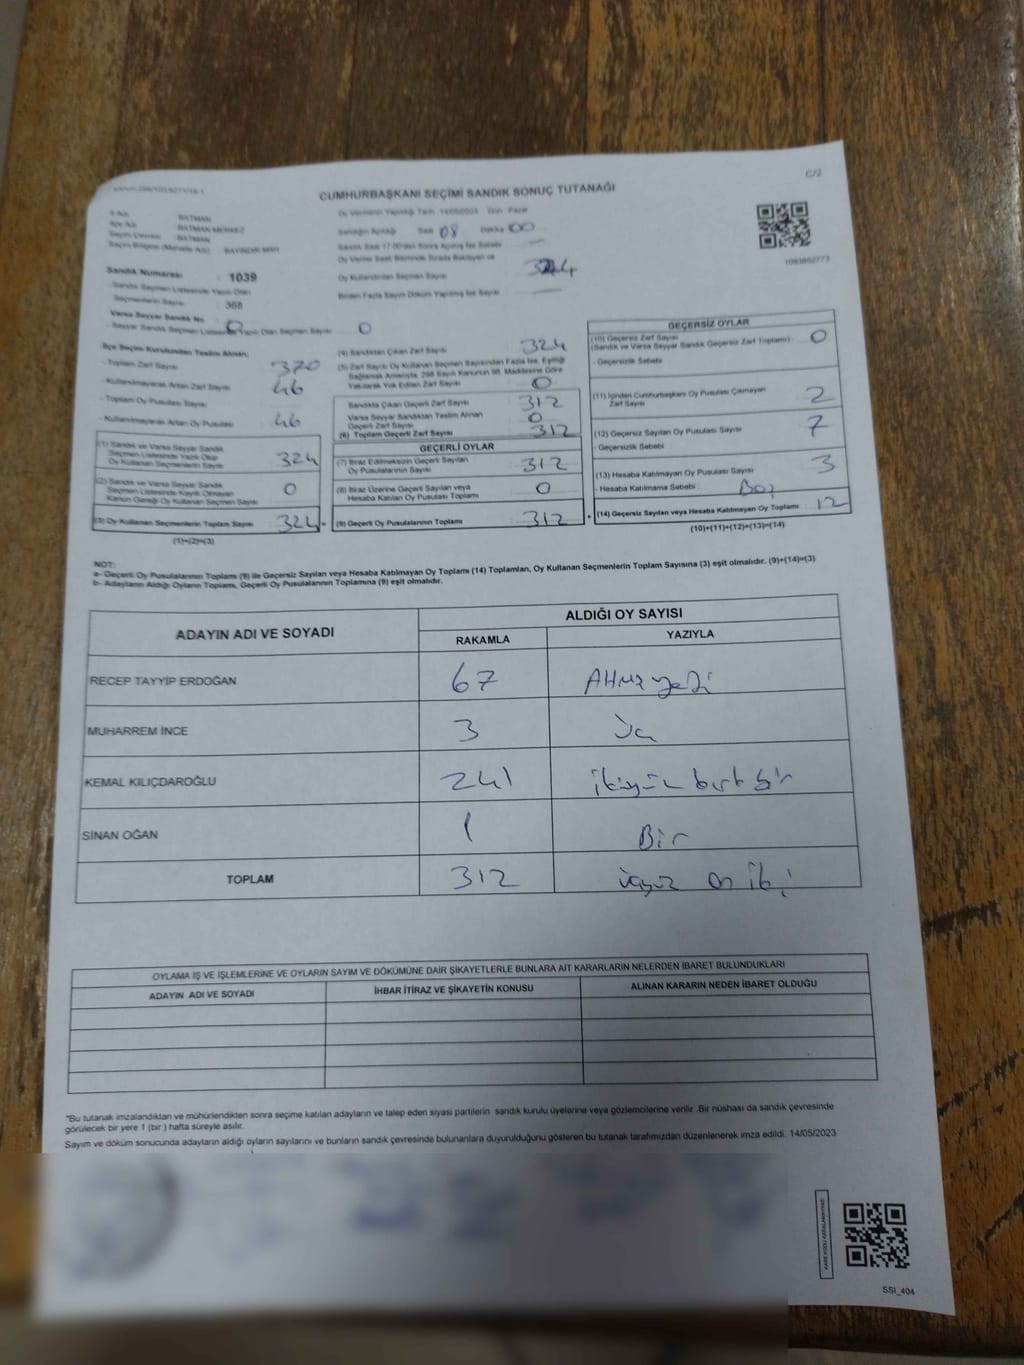 C/2
CUMHURBAŞKANI SEÇİMİ SANDIK SONUÇ TUTANAĞI
İl Adı : BATMAN
İlçe Adı : BATMAN MERKEZ
Seçim Çevresi : BATMAN
Seçim Bölgesi (Mahalle Adı) : BAYINDIR MAH.
Sandık Numarası : 1039
Sandık Seçmen Listesinde Yazılı Olan
Seçmenlerin Sayısı 368
Varsa Seyyar Sandık No 0
Seyyar Sandık Seçmen Listesinde Yazılı Olan Seçmen Sayısı 0
Oy Vermenin Yapıldığı Tarih Gün Pazar
Sandığın Açıldığı Saat 08 Dakika 00
Sandık Saat 17:00'den Sonra Açılmış İse Sebebi
Oy Verme Saati Bitiminde Sırada Bekleyen ve
Oy Kullandırılan Seçmen Sayısı
Birden Fazla Sayım Döküm Yapılmış İse Sayısı
1083862773
İlçe Seçim Kurulundan Teslim Alınan;
- Toplam Zarf Sayısı 370
- Kullanılmayarak Artan Zarf Sayısı 46
- Toplam Oy Pusulası Sayısı
- Kullanılmayarak Artan Oy Pusulası 46
(1) Sandık ve Varsa Seyyar Sandık
Seçmen Listesinde Yazılı Olup
Oy Kullanan Seçmenlerin Sayısı 324
(2) Sandık ve Varsa Seyyar Sandık
Seçmen Listesinde Kayıtlı Olmayan
Kanun Gereği Oy Kullanan Seçmen Sayısı 0
(3) Oy Kullanan Seçmenlerin Toplam Sayısı 324
(1)+(2)=(3)
(4) Sandıktan Çıkan Zarf Sayısı 324
(5) Zarf Sayısı Oy Kullanan Seçmen Sayısından Fazla İse, Eşitliği
Sağlamak Amacıyla; 298 Sayılı Kanunun 98. Maddesine Göre
Yakılarak Yok Edilen Zarf Sayısı 0
Sandıkta Çıkan Geçerli Zarf Sayısı 312
Varsa Seyyar Sandıktan Teslim Alınan
Geçerli Zarf Sayısı 0
(6) Toplam Geçerli Zarf Sayısı 312
GEÇERLİ OYLAR
(7) İtiraz Edilmeksizin Geçerli Sayılan
Oy Pusulalarının Sayısı 312
(8) İtiraz Üzerine Geçerli Sayılan veya
Hesaba Katılan Oy Pusulası Toplamı 0
(9) Geçerli Oy Pusulalarının Toplamı 312
GEÇERSİZ OYLAR
(10) Geçersiz Zarf Sayısı
(Sandık ve Varsa Seyyar Sandık Geçersiz Zarf Toplamı) 0
- Geçersizlik Sebebi
(11) İçinden Cumhurbaşkanı Oy Pusulası Çıkmayan
Zarf Sayısı 2
(12) Geçersiz Sayılan Oy Pusulası Sayısı 7
- Geçersizlik Sebebi
(13) Hesaba Katılmayan Oy Pusulası Sayısı 3
- Hesaba Katılmama Sebebi : Boş
(14) Geçersiz Sayılan veya Hesaba Katılmayan Oy Toplamı 12
(10)+(11)+(12)+(13)=(14)
NOT:
a- Geçerli Oy Pusulalarının Toplamı (9) ile Geçersiz Sayılan veya Hesaba Katılmayan Oy Toplamı (14) Toplamları, Oy Kullanan Seçmenlerin Toplam Sayısına (3) eşit olmalıdır. (9)+(14)=(3)
b- Adayların Aldığı Oyların Toplamı, Geçerli Oy Pusulalarının Toplamına (9) eşit olmalıdır.
ADAYIN ADI VE SOYADI ALDIĞI OY SAYISI
RAKAMLA YAZIYLA
RECEP TAYYİP ERDOĞAN 67 Altmış yedi
MUHARREM İNCE 3 Üç
KEMAL KILIÇDAROĞLU 241 ikiyüz kırk bir
SİNAN OĞAN 1 Bir
TOPLAM 312 üçyüz on iki
OYLAMA İŞ VE İŞLEMLERİNE VE OYLARIN SAYIM VE DÖKÜMÜNE DAİR ŞİKAYETLERLE BUNLARA AİT KARARLARIN NELERDEN İBARET BULUNDUKLARI
ADAYIN ADI VE SOYADI İHBAR İTİRAZ VE ŞİKAYETİN KONUSU ALINAN KARARIN NEDEN İBARET OLDUĞU
*Bu tutanak imzalandıktan ve mühürlendikten sonra seçime katılan adayların ve talep eden siyasi partilerin sandık kurulu üyelerine veya gözlemcilerine verilir. Bir nüshası da sandık çevresinde
görülecek bir yere 1 (bir ) hafta süreyle asılır.
Sayım ve döküm sonucunda adayların aldığı oyların sayılarını ve bunların sandık çevresinde bulunanlara duyurulduğunu gösteren bu tutanak tarafımızdan düzenlenerek imza edildi. 14/05/2023
SSI_404